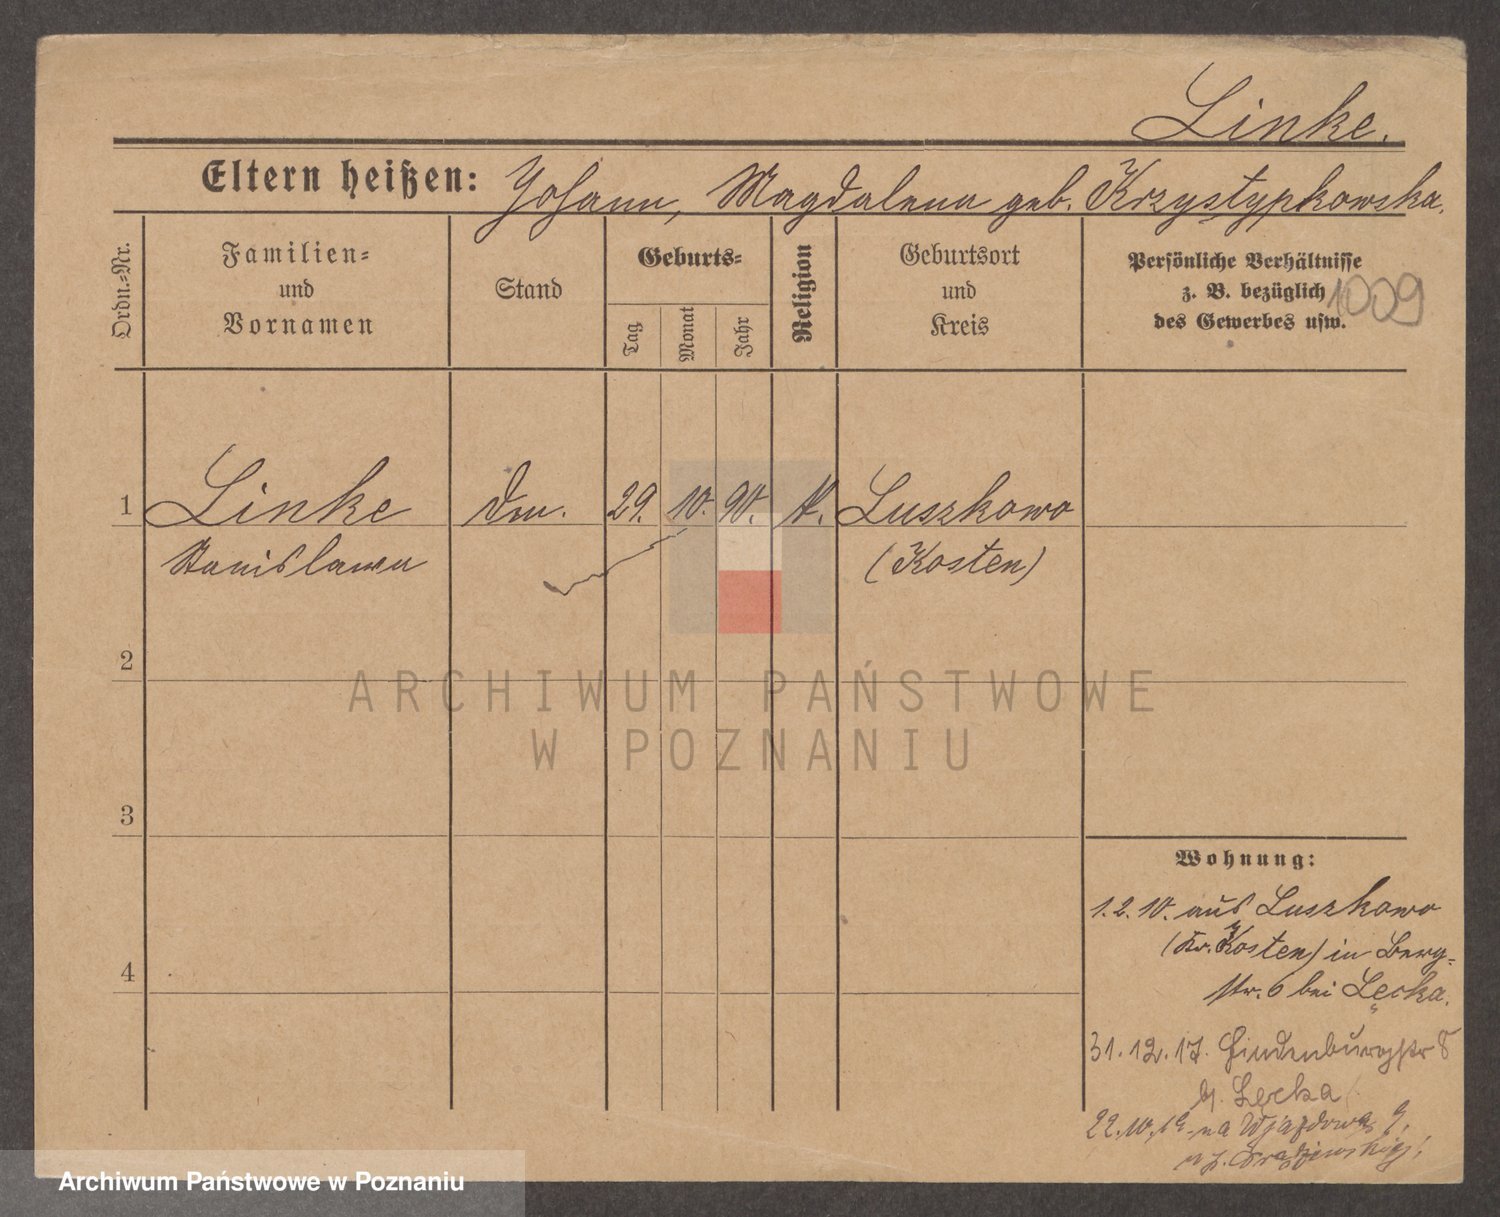 Linke.
Eltern heißen: Johann, Magdalena geb. Krzystypkowska.
Ordn.-Nr.
Familien-
und
Vornamen
Stand
Geburts-
Tag
Monat
Jahr
Religion
Geburtsort
und
Kreis
Persönliche Verhältnisse
z. B. bezüglich
des Gewerbes usw.
1009
1 Linke 29. 10. 90. Luszkowo
Stanislawa (Kosten)
2
3
4
ARCHIWUM PAŃSTWOWE
W POZNANIU
Wohnung:
1.2.10. aus Luszkowo
(Kr. Kosten) in Berg-
str. 6 bei Łęcka.
31.12.17. Hindenburgstr 8
b. Łęcka
22.10.19 na Wjazdową 9.
Archiwum Państwowe w Poznaniu